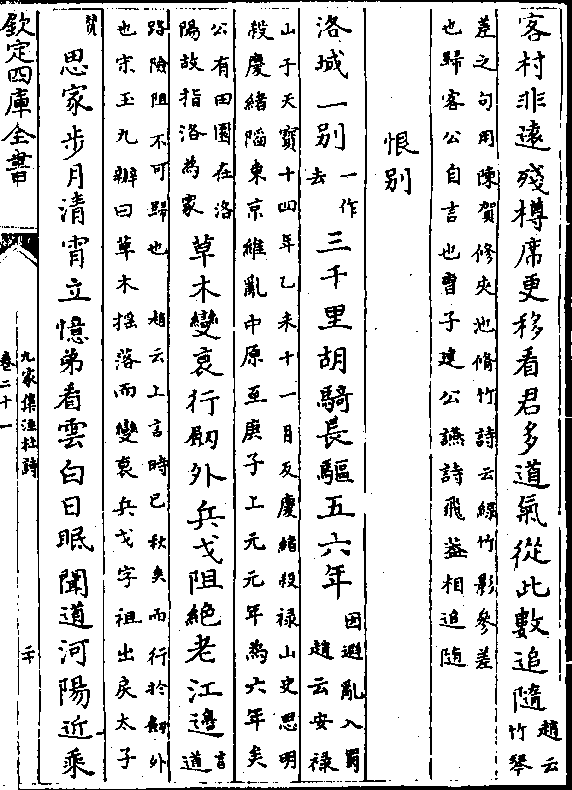 客村非遠殘樽席更移看君多道氣從此數追隨趙云竹參
差之句用陳賀修夾池脩竹詩云緑竹影參差
也歸客公自言也曹子建公讌詩飛葢相追隨
恨别
洛城一别一作去三千里胡騎長驅五六年因避亂入蜀趙云安禄
山于天寶十四年乙未十一月反慶緒殺禄山史思明
殺慶緒陷東京維亂中原至庚子上元元年為六年矣
公有田園在洛陽故指洛為家草木變衰行劒外兵戈阻絶老江邊言道
路險阻不可歸也 趙云上言時已秋矣而行於劒外
也宋玉九辯曰草木揺落而變衰兵戈字祖出戾太子
贊思家步月清宵立憶弟看雲白日眠聞道河陽近乘
欽定四庫全書
九家集注杜詩
卷二十一
二十